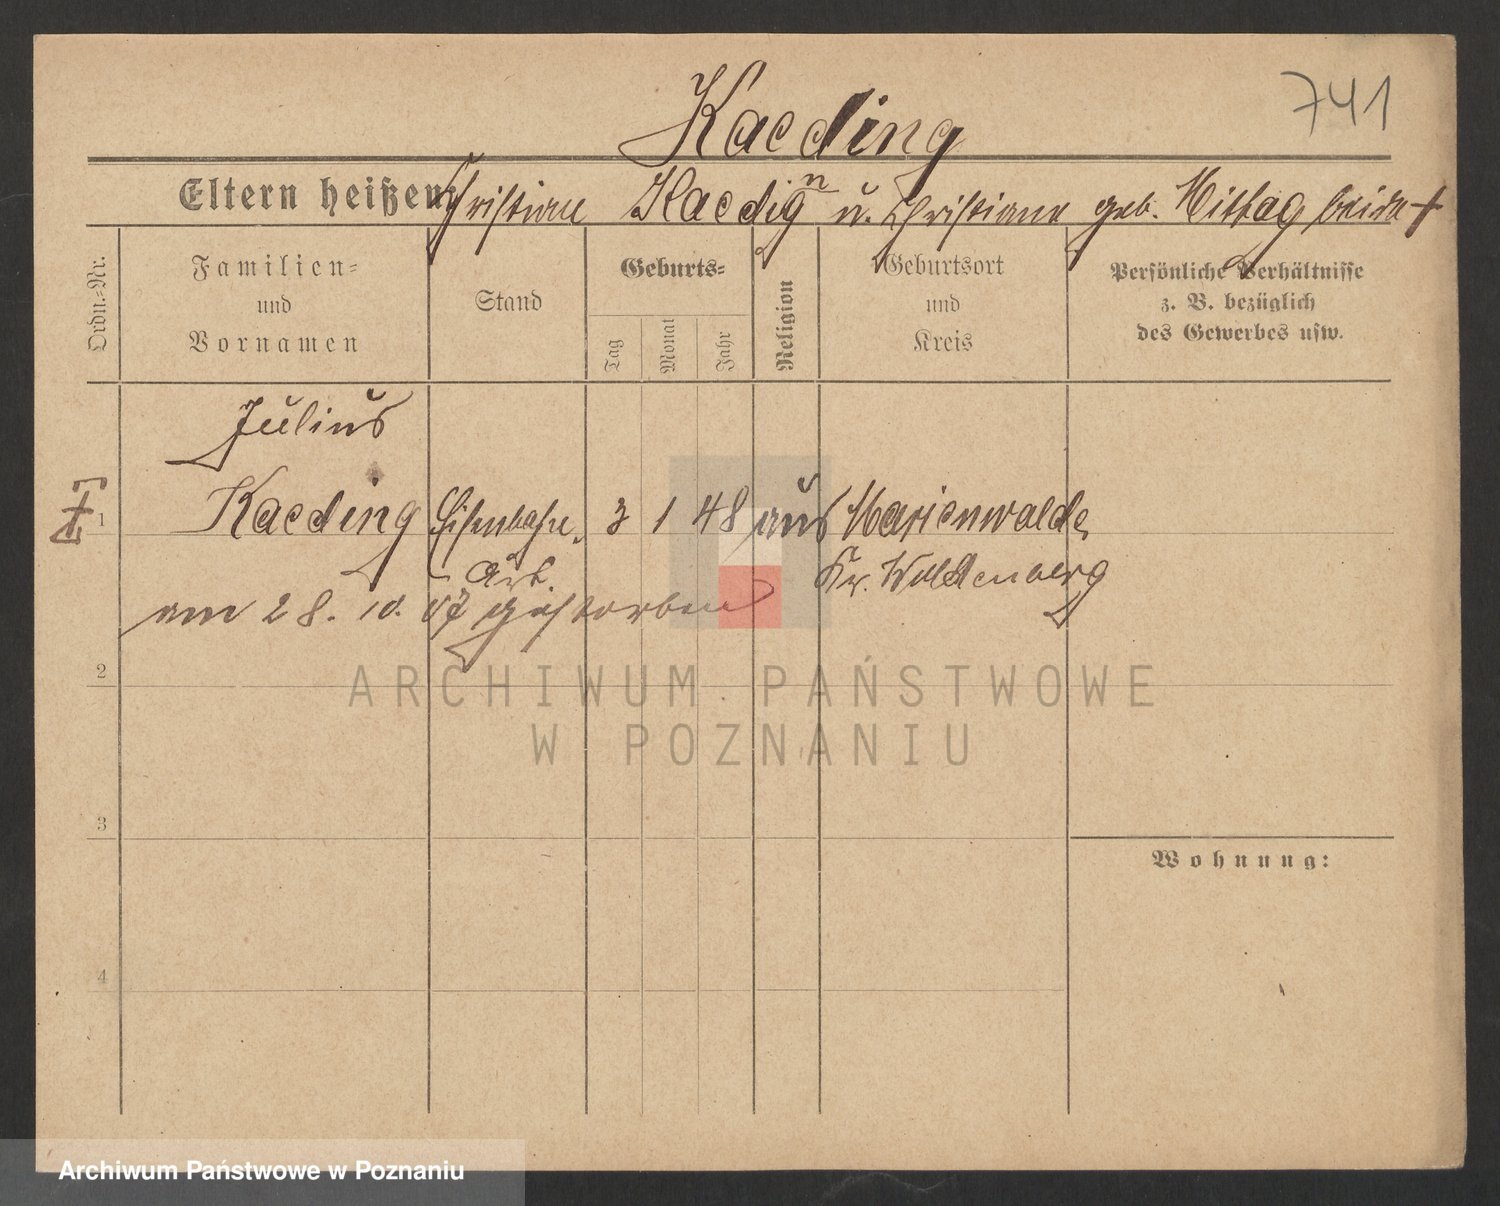 741
Kaeding
Eltern heißen: Christian Kaedig n u. Christiane geb. Mittag beide †
Ordn.-Nr.
Familien-
und
Vornamen
Stand
Geburts-
Tag
Monat
Jahr
Religion
Geburtsort
und
Kreis
Persönliche Verhältnisse
z. B. bezüglich
des Gewerbes usw.
Julius
1 Kaeding Eisenbahn- 3 1 48 aus Marienwalde
Arb. Kr. Woldenberg
am 28. 10. 07 gestorben
2
3
4
Wohnung:
ARCHIWUM PAŃSTWOWE
W POZNANIU
Archiwum Państwowe w Poznaniu